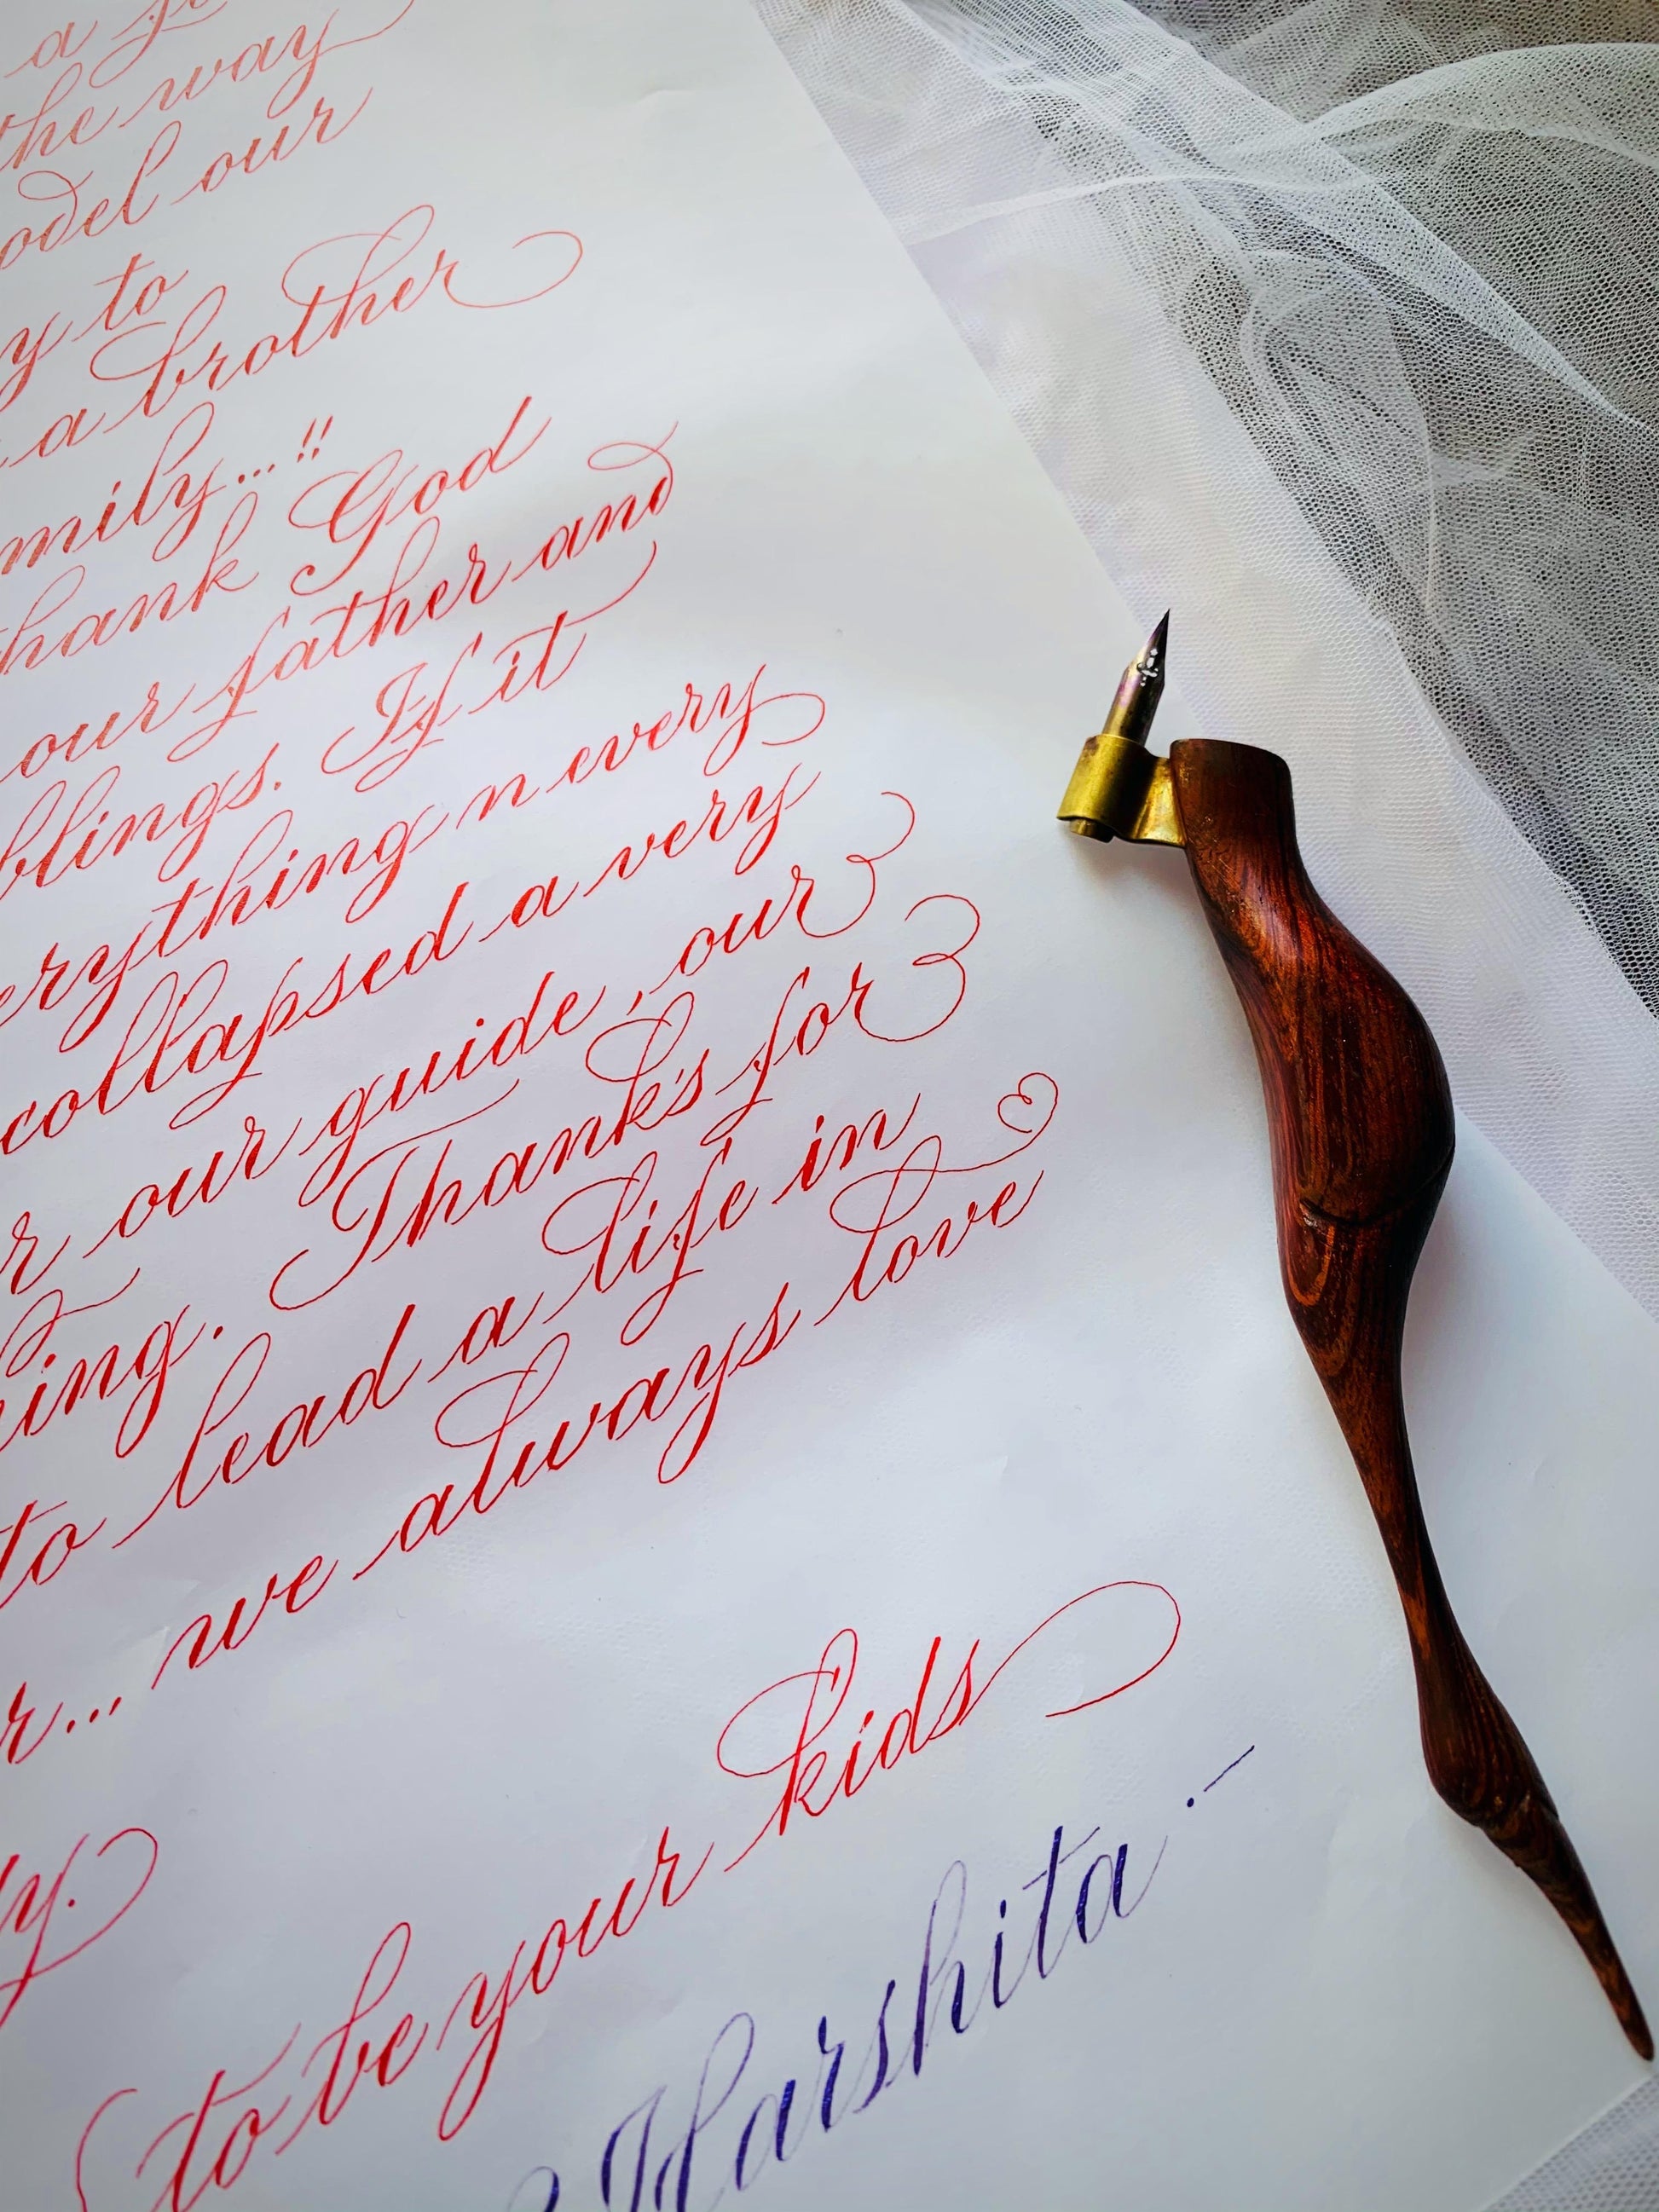 a
the way
odel our
y to
a brother
mily...!!
hank God
our father and
blings. If it
erything n every
collapsed a very
r our guide, our
ing. Thank's for
to lead a life in
r... we always love
ly.
to be your kids
Harshita .-